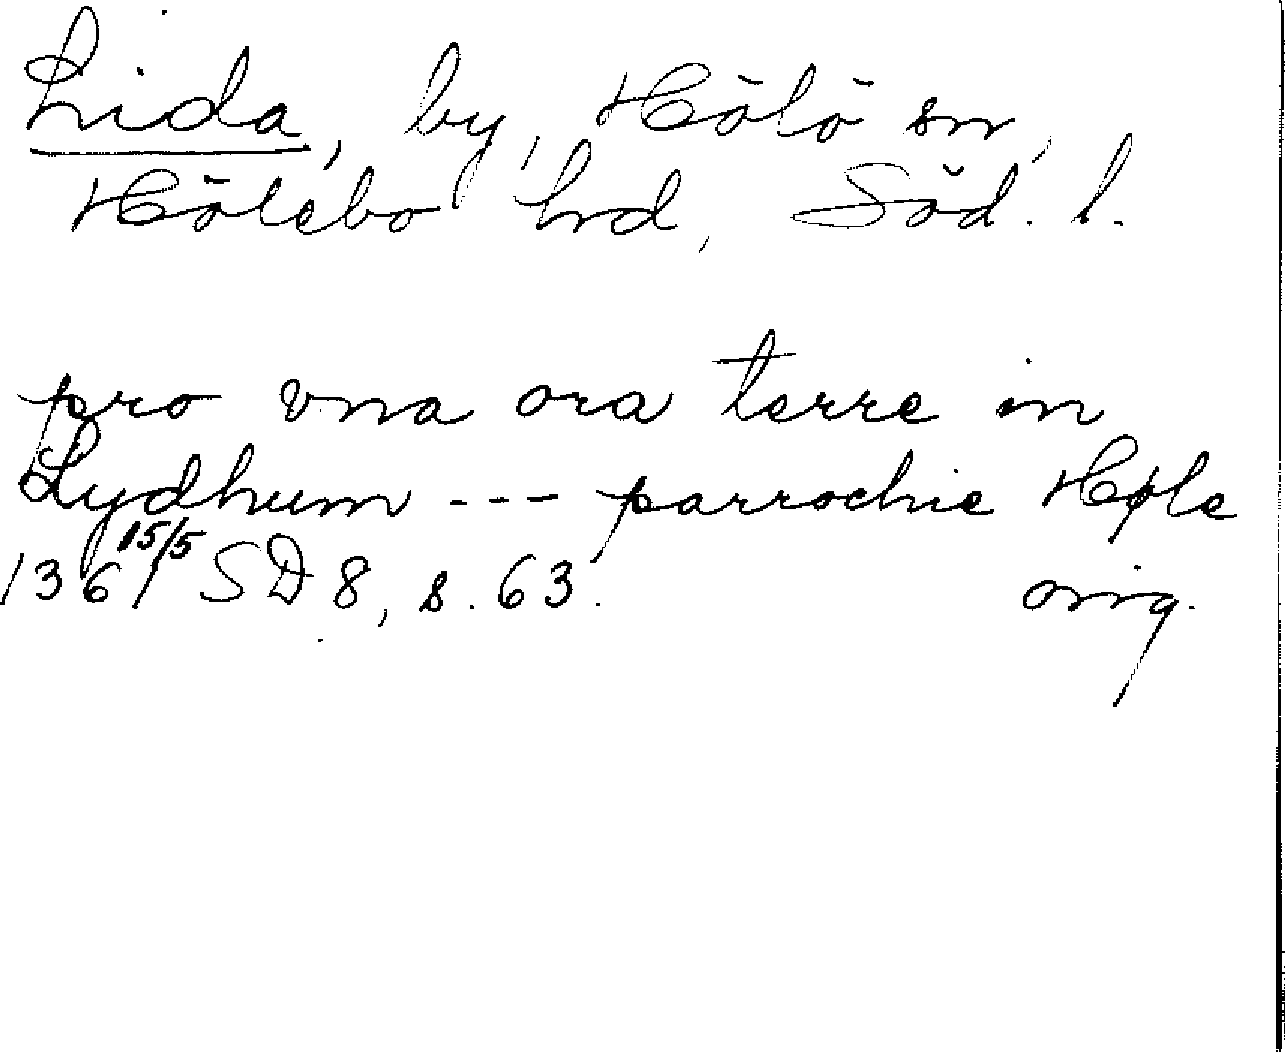 Lida, by, Hölö sn,
Hölebo hd, Söd. l.
pro vna ora terre in
Lydhum --- parrochie Høle
1361 15/5 SD 8, s. 63. orig.